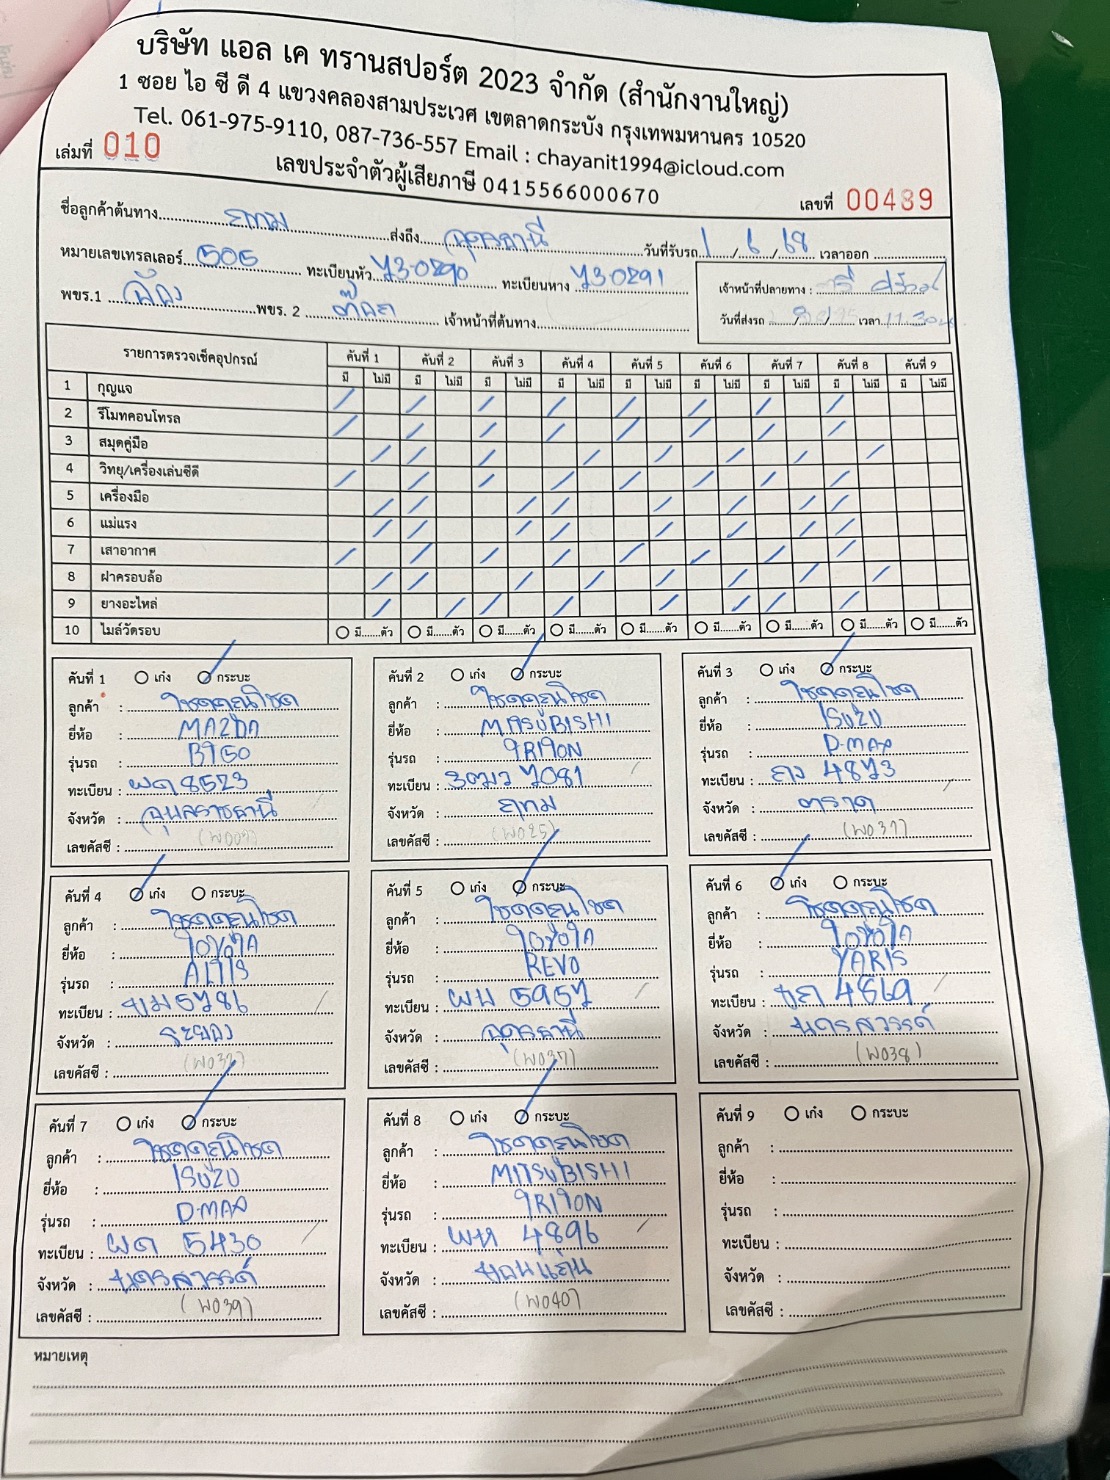 บริษัท แอล เค ทรานสปอร์ต 2023 จำกัด (สำนักงานใหญ่)
1 ซอย ไอ ซี ดี 4 แขวงคลองสามประเวศ เขตลาดกระบัง กรุงเทพมหานคร 10520
Tel. 061-975-9110, 087-736-557 Email : chayanit1994@icloud.com
เล่มที่ 010 เลขประจำตัวผู้เสียภาษี 0415566000670 เลขที่ 00489
ชื่อลูกค้าต้นทาง กทม ส่งถึง อุดรธานี วันที่รับรถ 1/6/68 เวลาออก
หมายเลขเทรลเลอร์ 505 ทะเบียนหัว 73-0290 ทะเบียนหาง 73-0291 เจ้าหน้าที่ปลายทาง :
พขร.1 พขร. 2 เจ้าหน้าที่ต้นทาง วันที่ส่งรถ เวลา 11.30
รายการตรวจเช็คอุปกรณ์ คันที่ 1 คันที่ 2 คันที่ 3 คันที่ 4 คันที่ 5 คันที่ 6 คันที่ 7 คันที่ 8 คันที่ 9
มี ไม่มี มี ไม่มี มี ไม่มี มี ไม่มี มี ไม่มี มี ไม่มี มี ไม่มี มี ไม่มี มี ไม่มี
1 กุญแจ / / / / / / / /
2 รีโมทคอนโทรล / / / / / / / /
3 สมุดคู่มือ / / / / / / / /
4 วิทยุ/เครื่องเล่นซีดี / / / / / / / /
5 เครื่องมือ / / / / / / / /
6 แม่แรง / / / / / / / /
7 เสาอากาศ / / / / / / / /
8 ฝาครอบล้อ / / / / / / / /
9 ยางอะไหล่ / / / / / / / /
10 ไมล์วัดรอบ มี......ตัว มี......ตัว มี......ตัว มี......ตัว มี......ตัว มี......ตัว มี......ตัว มี......ตัว มี......ตัว
คันที่ 1 เก๋ง กระบะ
ลูกค้า : โชคคูณโชค
ยี่ห้อ : MAZDA
รุ่นรถ : BT50
ทะเบียน : ผด 8523
จังหวัด : อุบลราชธานี
เลขคัสซี :
คันที่ 2 เก๋ง กระบะ
ลูกค้า : โชคคูณโชค
ยี่ห้อ : MITSUBISHI
รุ่นรถ : TRITON
ทะเบียน : 3ฒว 7081
จังหวัด : กทม
เลขคัสซี : (W025)
คันที่ 3 เก๋ง กระบะ
ลูกค้า : โชคคูณโชค
ยี่ห้อ : ISUZU
รุ่นรถ : D-MAX
ทะเบียน : 4873
จังหวัด : ตราด
เลขคัสซี : (W031)
คันที่ 4 เก๋ง กระบะ
ลูกค้า : โชคคูณโชค
ยี่ห้อ : TOYOTA
รุ่นรถ : ALTIS
ทะเบียน : ขม 5786
จังหวัด : ระยอง
เลขคัสซี :
คันที่ 5 เก๋ง กระบะ
ลูกค้า : โชคคูณโชค
ยี่ห้อ : TOYOTA
รุ่นรถ : REVO
ทะเบียน : ผน 5957
จังหวัด : อุดรธานี
เลขคัสซี : (W037)
คันที่ 6 เก๋ง กระบะ
ลูกค้า : โชคคูณโชค
ยี่ห้อ : TOYOTA
รุ่นรถ : YARIS
ทะเบียน : ขก 4869
จังหวัด : นครสวรรค์
เลขคัสซี : (W038)
คันที่ 7 เก๋ง กระบะ
ลูกค้า : โชคคูณโชค
ยี่ห้อ : ISUZU
รุ่นรถ : D-MAX
ทะเบียน : ผด 5430
จังหวัด : นครสวรรค์
เลขคัสซี : (W039)
คันที่ 8 เก๋ง กระบะ
ลูกค้า : โชคคูณโชค
ยี่ห้อ : MITSUBISHI
รุ่นรถ : TRITON
ทะเบียน : 4896
จังหวัด : ขอนแก่น
เลขคัสซี : (W040)
คันที่ 9 เก๋ง กระบะ
ลูกค้า :
ยี่ห้อ :
รุ่นรถ :
ทะเบียน :
จังหวัด :
เลขคัสซี :
หมายเหตุ